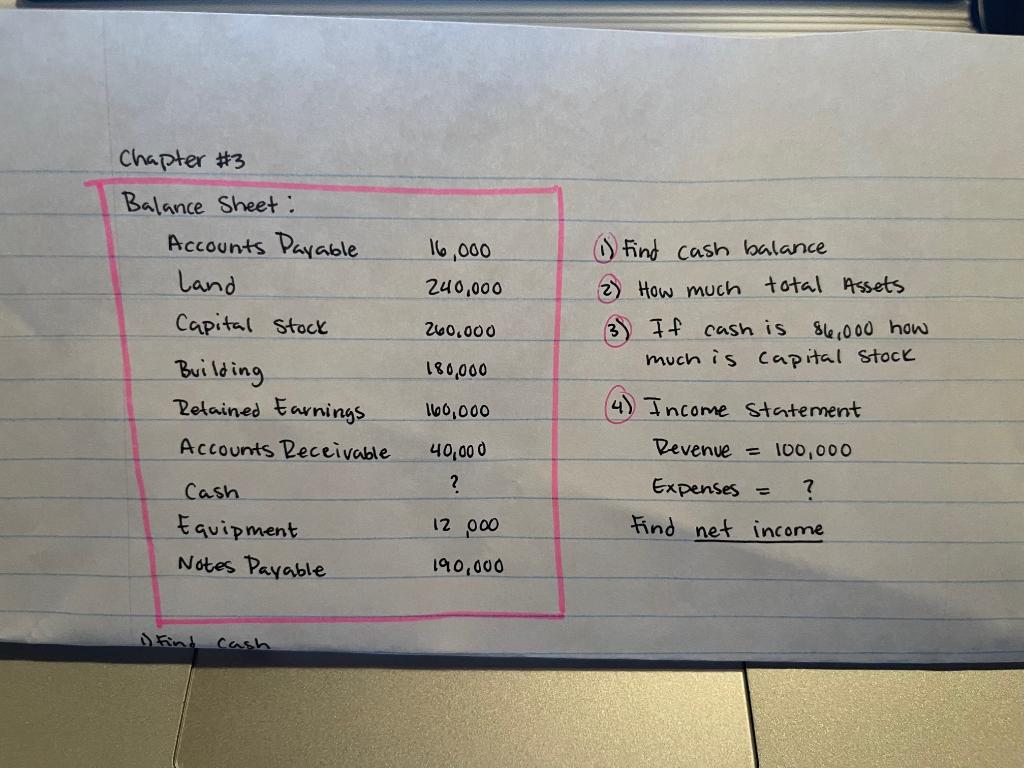 Chapter #3
Balance Sheet:
Accounts Payable 16,000
Land 240,000
Capital Stock 260,000
Building 180,000
Retained Earnings 160,000
Accounts Receivable 40,000
Cash ?
Equipment 12,000
Notes Payable 190,000
1) Find cash
1) Find cash balance
2) How much total Assets
3) If cash is 86,000 how
much is Capital Stock
4) Income Statement
Revenue = 100,000
Expenses = ?
Find net income